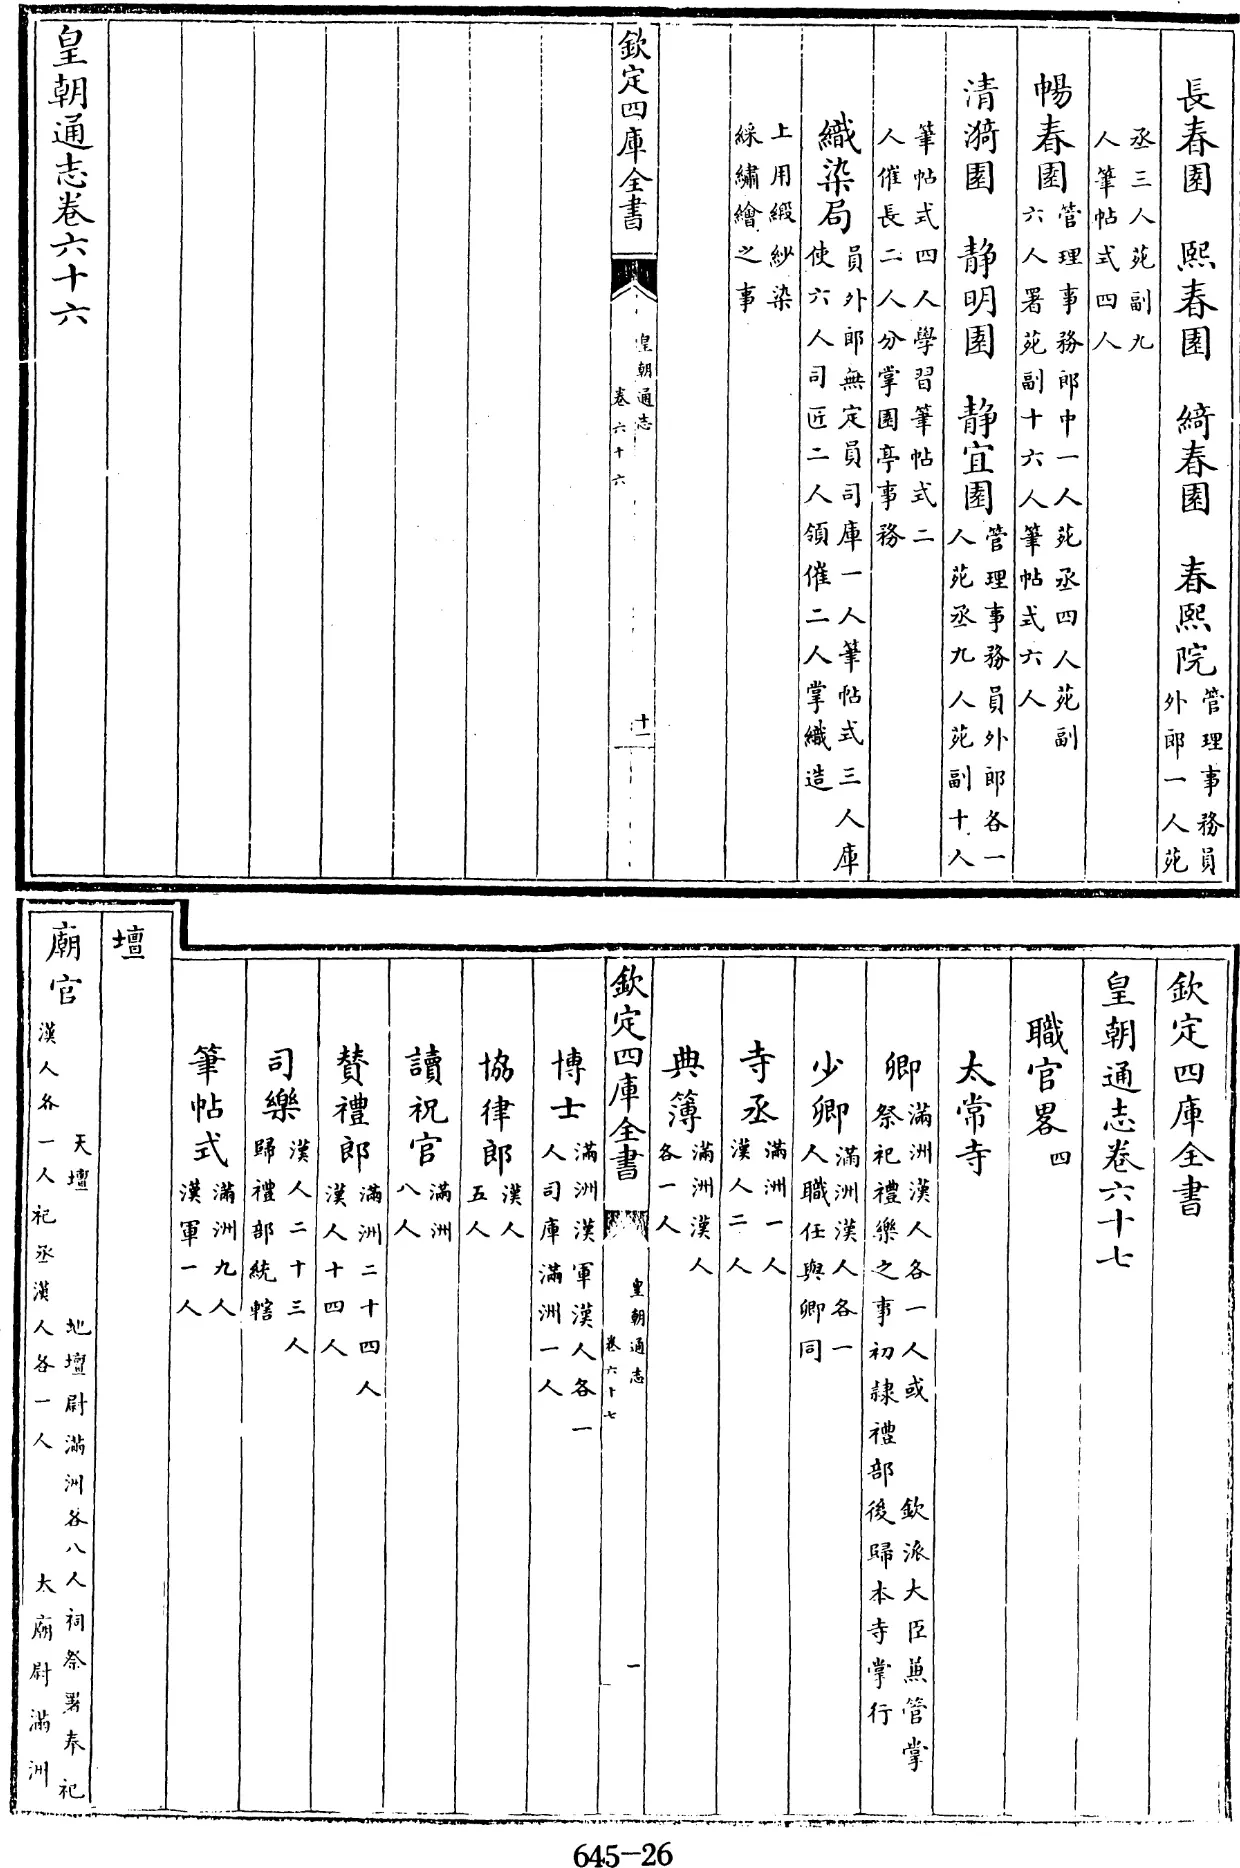 長春園　熙春園　綺春園　春熙院管理事務員外郎一人苑
丞三人苑副九人筆帖式四人
暢春園管理事務郎中一人苑丞四人苑副六人署苑副十六人筆帖式六人
清漪園　靜明園　靜宜園管理事務員外郎各一人苑丞九人苑副十人
筆帖式四人學習筆帖式二人催長二人分掌園亭事務
織染局員外郎無定員司庫一人筆帖式三人庫使六人司匠二人領催二人掌織造
上用緞紗染綵繡繪之事
欽定四庫全書
皇朝通志
卷六十六
十一
皇朝通志卷六十六
欽定四庫全書
皇朝通志卷六十七
職官畧四
太常寺
卿滿洲漢人各一人或　欽派大臣兼管掌祭祀禮樂之事初隸禮部後歸本寺掌行
少卿滿洲漢人各一人職任與卿同
寺丞滿洲一人漢人二人
典簿滿洲漢人各一人
欽定四庫全書
皇朝通志
卷六十七
一
博士滿洲漢軍漢人各一人司庫滿洲一人
協律郎漢人五人
讀祝官滿洲八人
贊禮郎滿洲二十四人漢人十四人
司樂漢人二十三人歸禮部統轄
筆帖式滿洲九人漢軍一人
壇
廟官　天壇　地壇尉滿洲各八人祠祭署奉祀漢人各一人祀丞漢人各一人　太廟尉滿洲
645-26